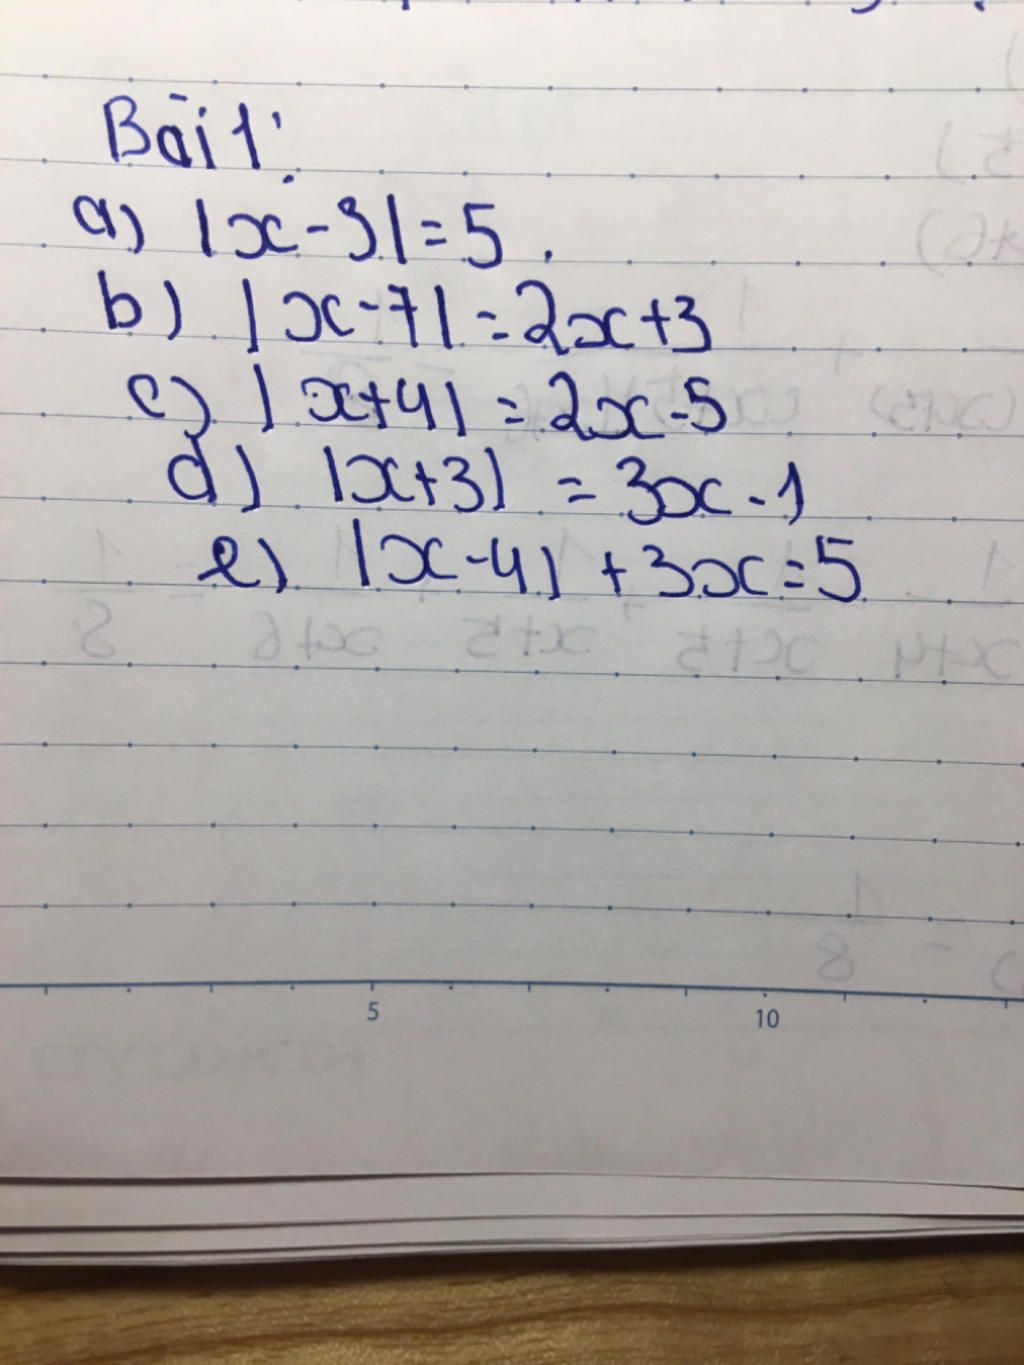 Bài 1:
a) |x-3|=5.
b) |x-7|=2x+3
c) |x+4|=2x-5
d) |x+3|=3x-1
e) |x-4|+3x=5
5 10